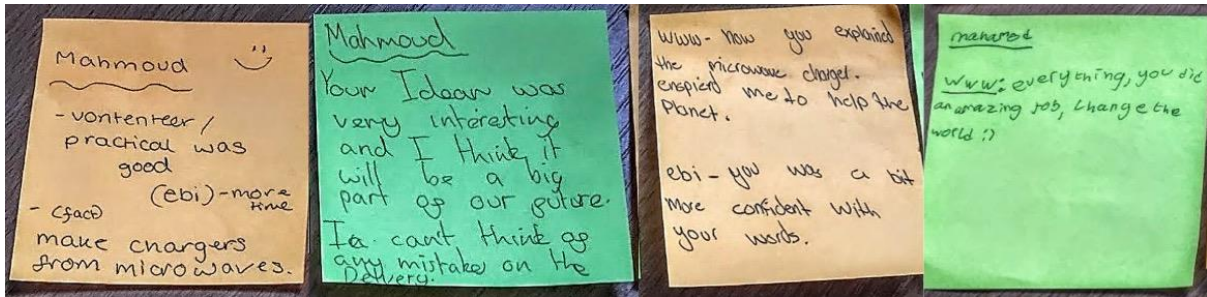 Mahmoud :)
-vontenteer/
practical was
good
(ebi)-more
time
- (fact)
make chargers
from microwaves.
Mahmoud
Your Idear was
very interesting
and I think it
will be a big
part of our future.
I cant think of
any mistakes on the
Delivery.
www- how you explained
the microwave charger.
enspierd me to help the
Planet.
ebi- you was a bit
more confident with
your words.
mahamed
www: everything, you did
an amazing job, Change the
world :)